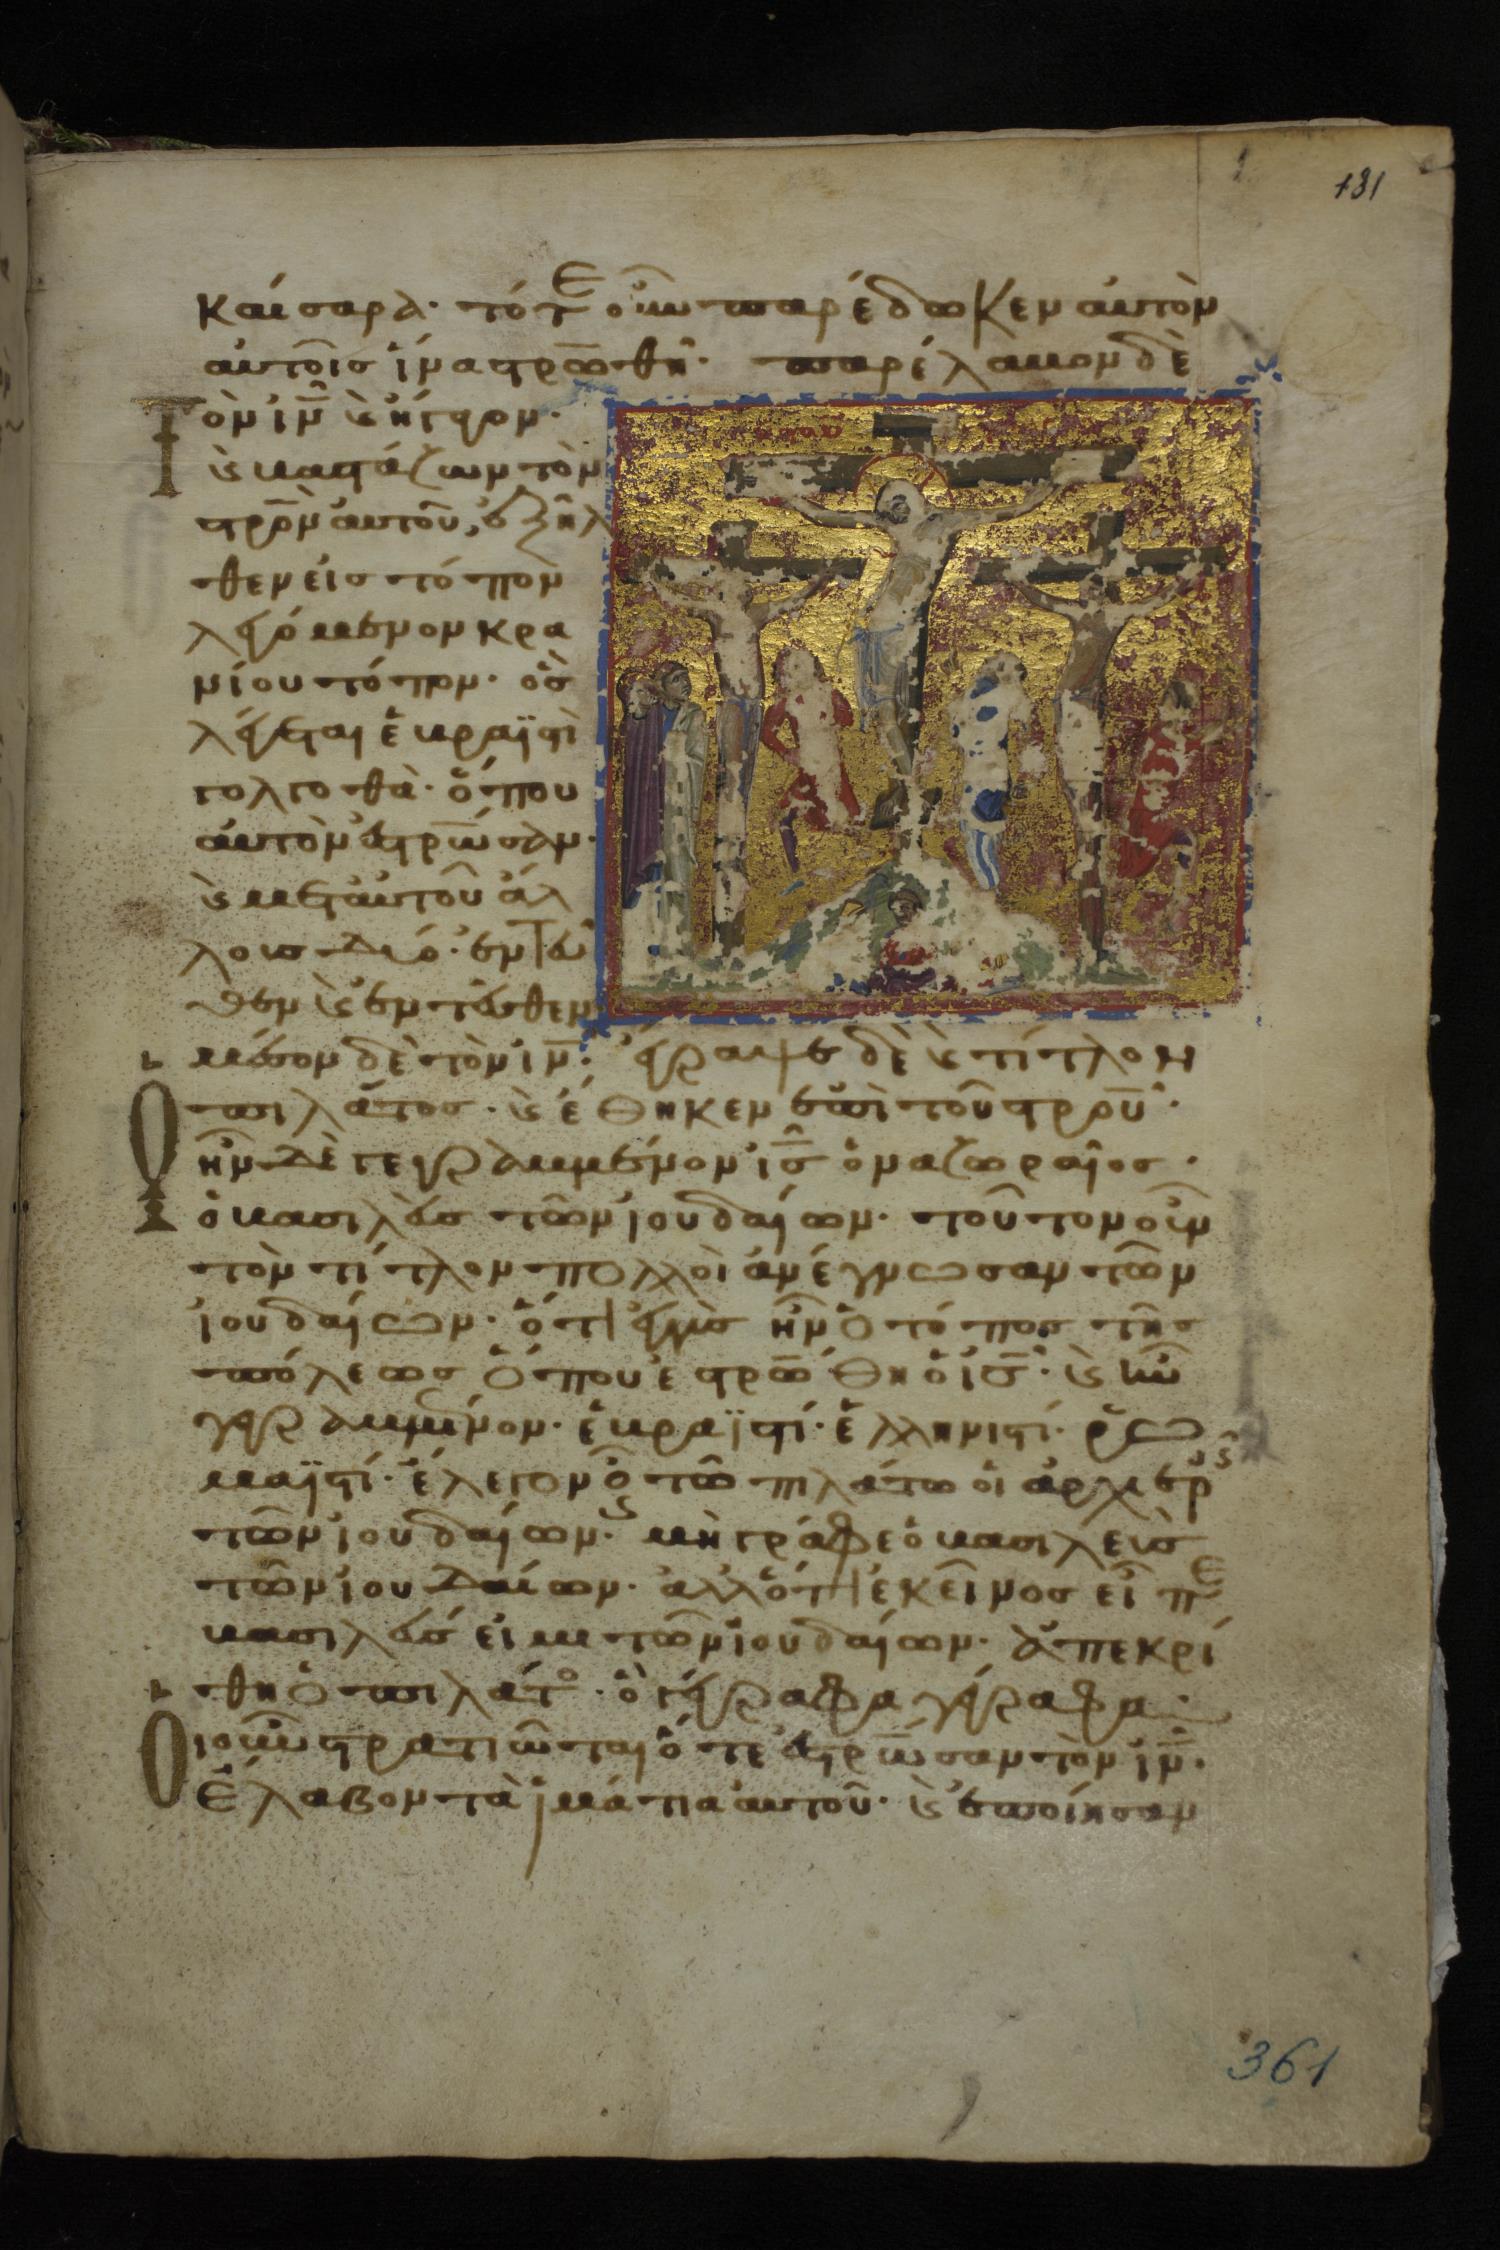 181
καίσαρα· τότε οὖν παρέδωκεν αὐτὸν
αὐτοῖς ἵνα στρωθῆ· παρέλαβον δὲ
Τὸν ιν̅ ϗ ἤγαγον·
ϗ βαστάζων τὸν
στρο̅ν αὐτοῦ, ἐξῆλ
θεν εἰς τόπον
λεγόμενον κρα
νίου τόπον· ὃς
λέγεται ἑβραϊστὶ
γολγοθὰ· ὅπου
αὐτὸν ἐστρω̅σαν·
ϗ μετ αὐτοῦ ἄλ
λους δύο· ἐντεῦ
θεν ϗ ἐντεῦθεν
μέσον δὲ τὸν ιν̅· ἔγραψε δὲ ϗ τίτλον
Ὁ πιλάτος· ϗ ἔθηκεν ἐπὶ τοῦ στρου̅·
ἦν δὲ γεγραμμένον ις̅ ὁ ναζωραῖος·
ὁ βασιλεὺς τῶν ἰουδαίων· τοῦτον οὖν
τὸν τίτλον πολλοὶ ἀνέγνωσαν τῶν
ἰουδαίων· ὅτι ἐγγὺς ἦν ὁ τόπος τῆς
πόλεως ὅπου ἐστρω̅θη ὁ ις̅· ϗ ἦν
γεγραμμένον· ἑβραϊστί· ἑλληνιστί· ῥω
μαϊστί· ἔλεγον οὖν τῶ πιλάτω οἱ ἀρχιερεῖς
τῶν ἰουδαίων· μὴ γράφε ὁ βασιλεὺς
τῶν ἰουδαίων· ἀλλ ὅτι ἐκεῖνος εἶπε
βασιλεύς εἰμι τῶν ἰουδαίων· ἀπεκρί
θη ὁ πιλάτος· ὃ γέγραφα γέγραφα·
Οἱ οὖν στρατιῶται ὅτε ἐστρω̅σαν τὸν ιν̅·
ἔλαβον τὰ ἱμάτια αὐτοῦ· ϗ ἐποίησαν
361